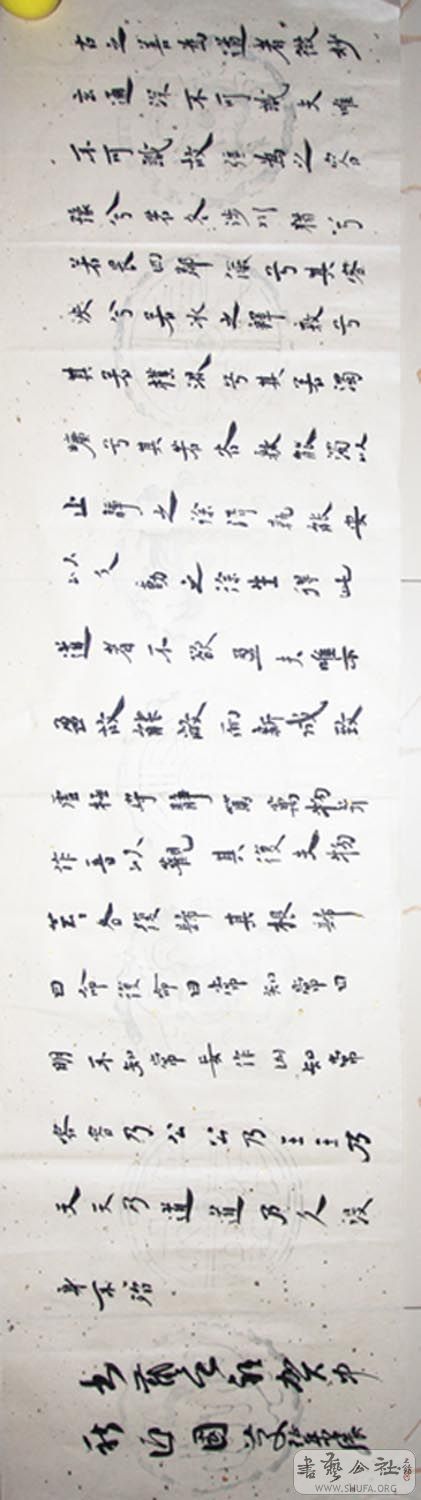 古之善為道者微妙
玄通深不可識夫唯
不可識故強為之容
豫兮若冬涉川猶兮
若畏四鄰儼兮其容
渙兮若冰之釋敦兮
其若樸混兮其若濁
曠兮其若谷孰能濁以
止靜之徐清孰能安
以久動之徐生得此
道者不欲盈夫唯不
盈故能敝而新成致
虛極守靜篤萬物並
作吾以觀其復夫物
芸各復歸其根歸
曰命復命曰常知常曰
明不知常妄作凶知常
容容乃公公乃王王乃
天天乃道道乃久沒
身不殆
癸巳
秋 國
書藝公社
WWW.SHUFA.ORG